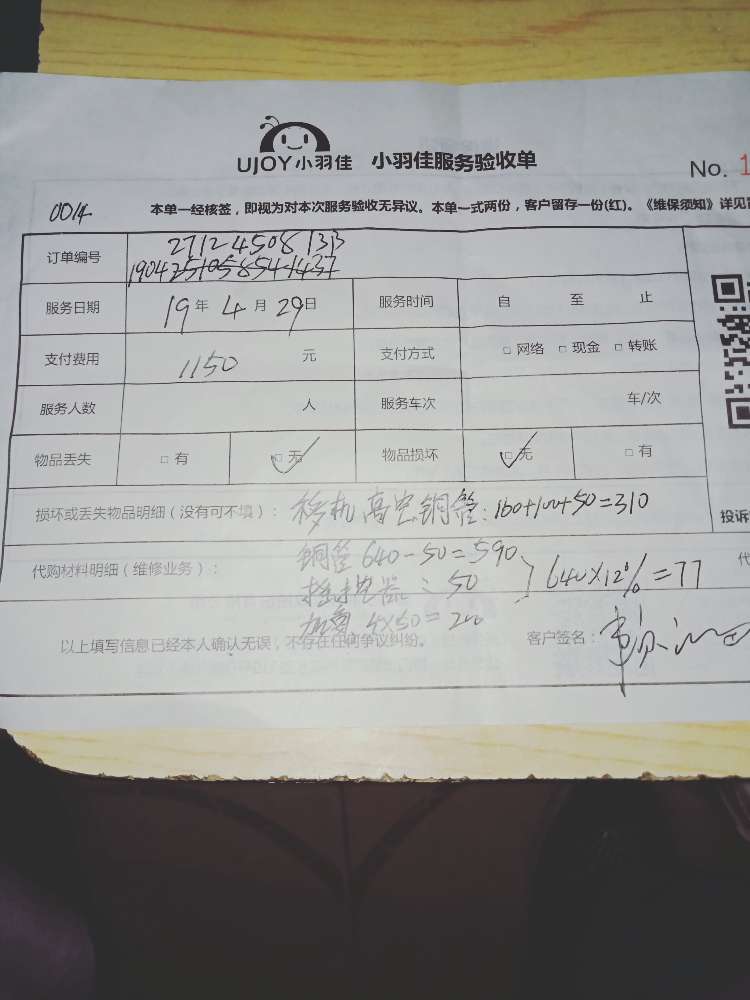 UJOY小羽佳 小羽佳服务验收单
No. 1
0014
本单一经核签，即视为对本次服务验收无异议。本单一式两份，客户留存一份(红)。《维保须知》详见
订单编号 27124508133
1904251058541437
服务日期 19年4月29日 服务时间 自 至 止
支付费用 1150 元 支付方式 □ 网络 □ 现金 □ 转账
服务人数 人 服务车次 车/次
物品丢失 □ 有 □ 无 物品损坏 □ 无 □ 有
损坏或丢失物品明细（没有可不填）： 移机 高空 铜管：160+100+50=310
投诉
代购材料明细（维修业务）： 铜管 640-50=590
代
50
640×12%=77
4×50=200
以上填写信息已经本人确认无误，不存在任何争议纠纷。 客户签名：